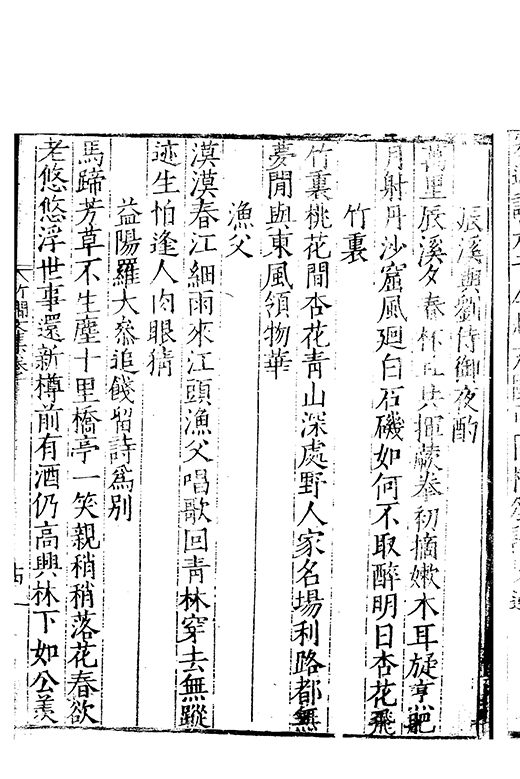 辰溪與劉侍御夜酌
萬里辰溪夕春杯且共揮蕨拳初摘嫩木耳旋烹肥
月射丹沙窟風廻白石磯如何不取醉明日杏花飛
竹裏
竹裏桃花間杏花青山深處野人家名場利路都無
夢閒與東風領物華
漁父
漠漠春江細雨來江頭漁父唱歌回青林穿去無蹤
迹生怕逢人肉眼猜
益陽羅大參追餞留詩爲別
馬蹄芳草不生塵十里橋亭一笑親稍稍落花春欲
老悠悠浮世事還新樽前有酒仍高興林下如公羨
竹澗文集卷